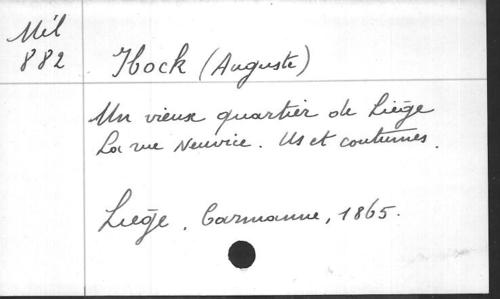 Mél
882
Hock (Auguste)
Un vieux quartier de Liège
La rue Neuvice. Us et coutumes.
Liège, Carmanne, 1865.